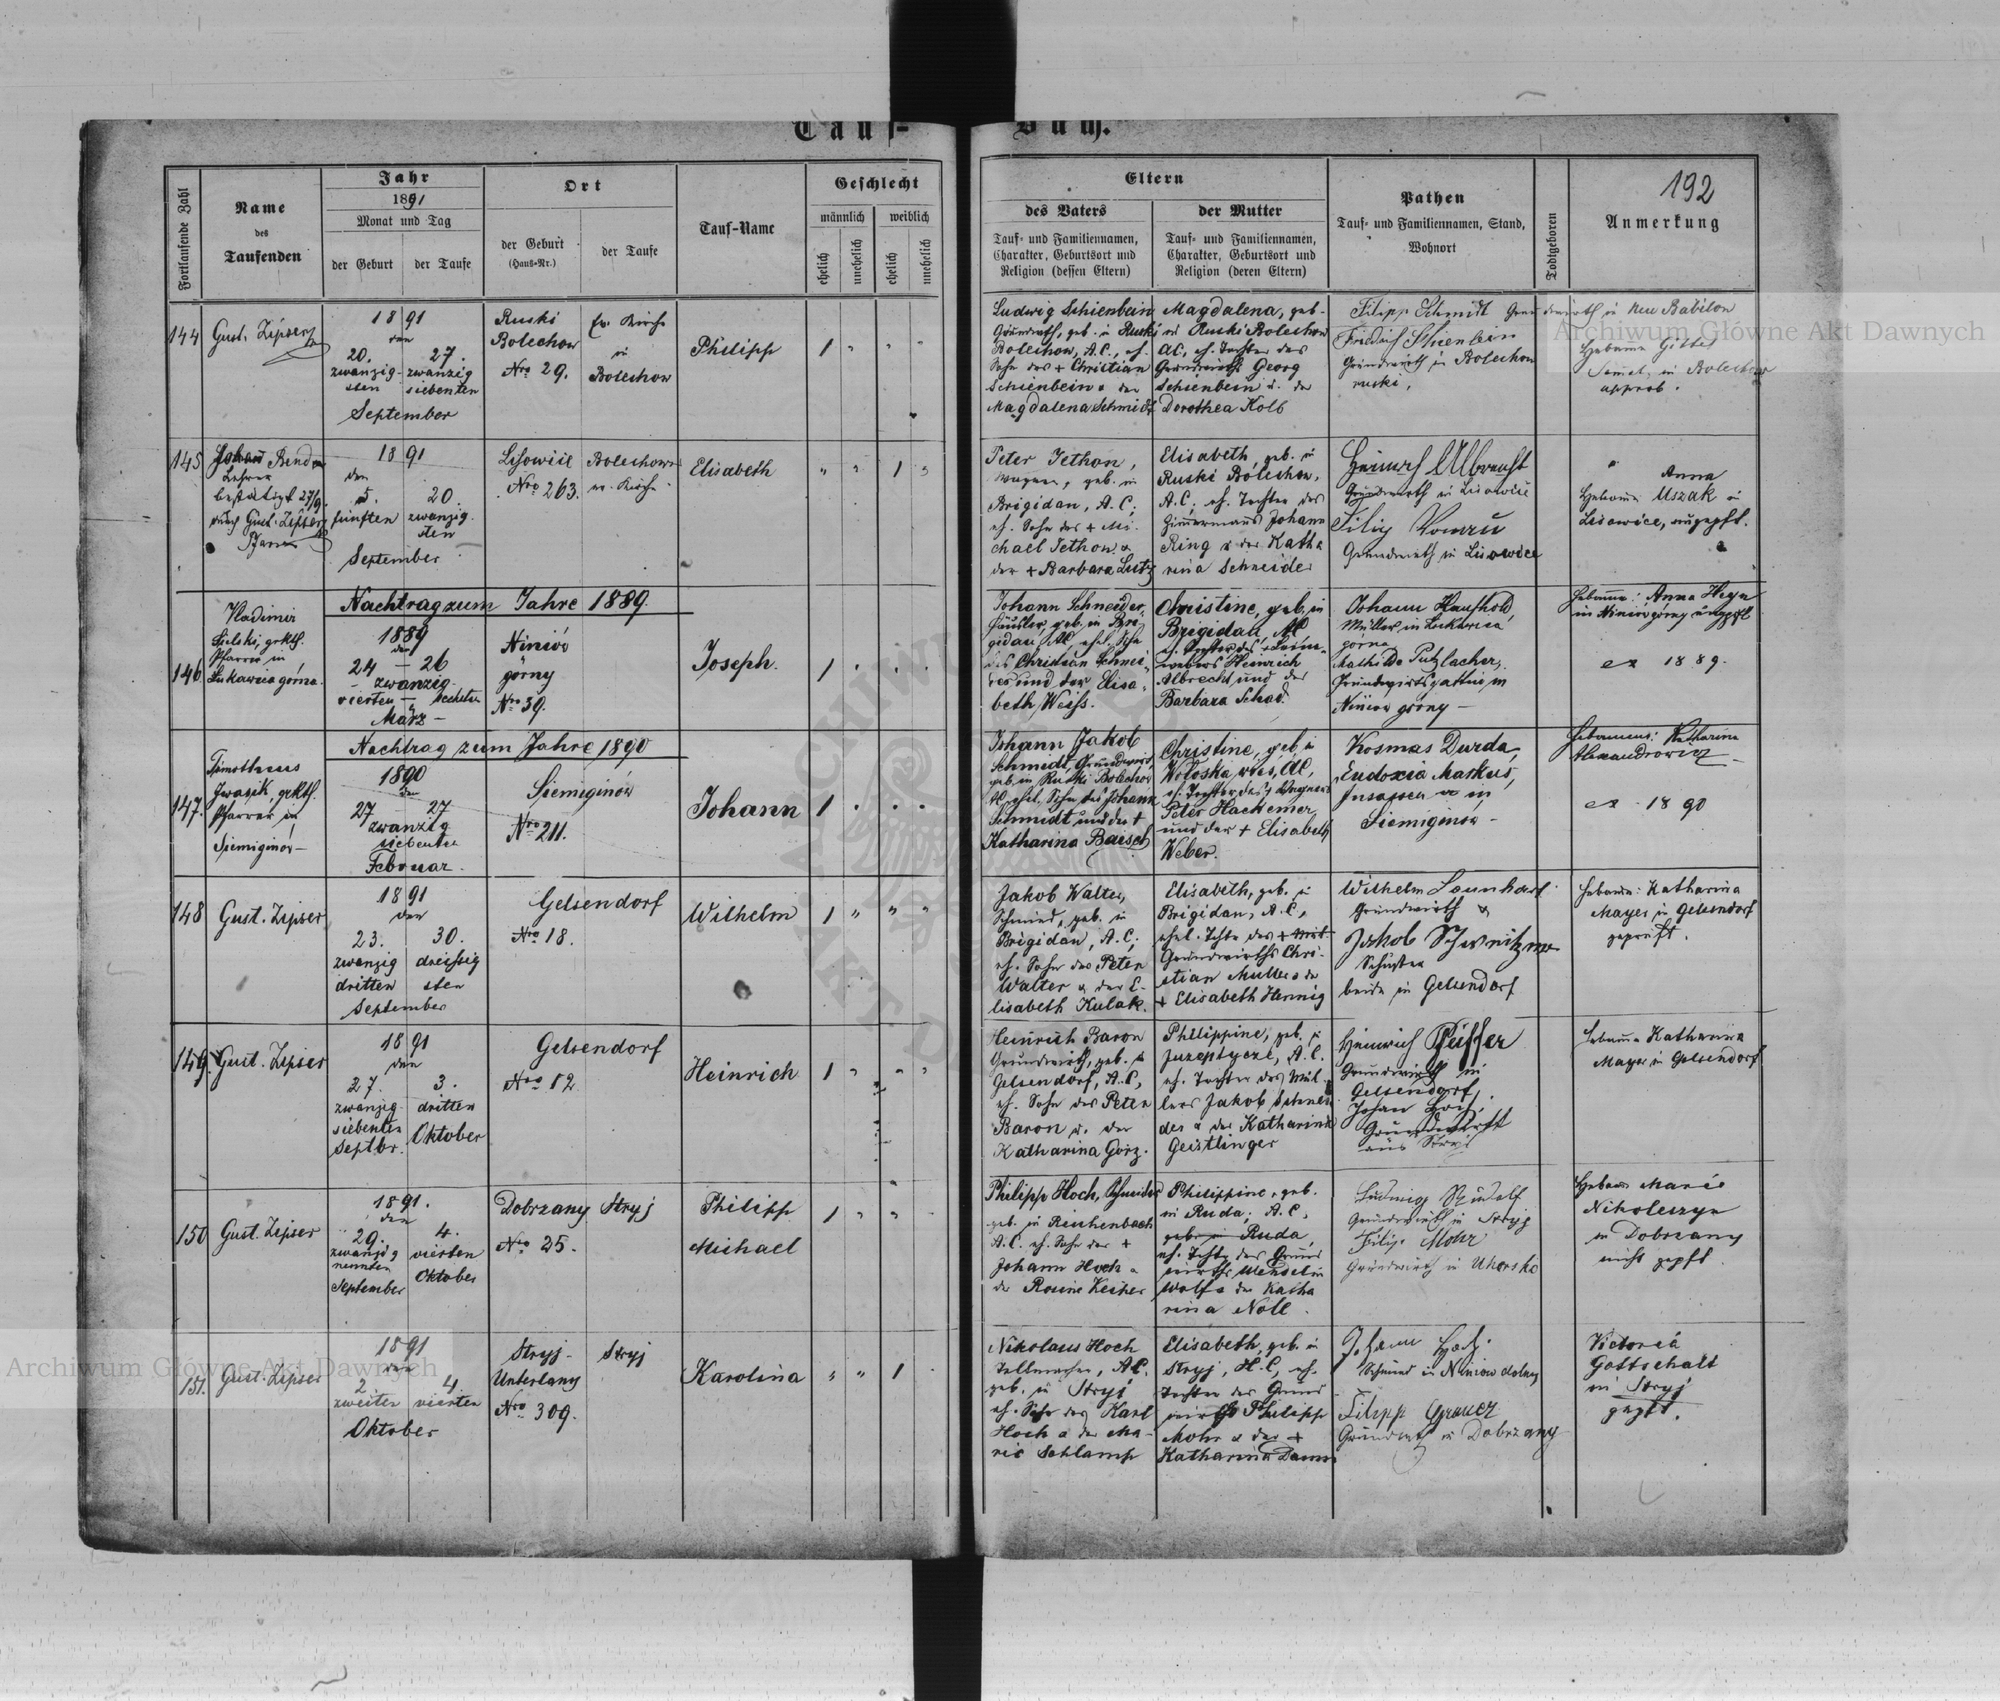 Tauf-
Buch.
192
Fortlaufende Zahl
Name
des
Taufenden
Jahr
1891
Monat und Tag
der Geburt
der Taufe
Ort
der Geburt
(Haus-Nr.)
der Taufe
Tauf-Name
Geschlecht
männlich
weiblich
ehelich
unehelich
ehelich
unehelich
Eltern
des Vaters
Tauf- und Familiennamen,
Charakter, Geburtsort und
Religion (dessen Eltern)
der Mutter
Tauf- und Familiennamen,
Charakter, Geburtsort und
Religion (deren Eltern)
Pathen
Tauf- und Familiennamen, Stand,
Wohnort
Todtgeboren
Anmerkung
144
Gust. Zipser
1891
den
20.
zwanzig-
sten
27.
zwanzig
siebenten
September
Ruski
Bolechow
Nro 29.
Ev. Kirche
in
Bolechow
Philipp
1
Ludwig Schienbein
Grundwirth, geb. in Ruski
Bolechow, A.C., eh.
Sohn des + Christian
Schienbein u. der
Magdalena Schmidt
Magdalena, geb.
in Ruski Bolechow
AC, eh. Tochter des
Grundwirths Georg
Schienbein u. der
Dorothea Kolb
Filipp Schmidt Grundwirth in Neu Babilon
Friedrich Schienbein
Grundwirth in Bolechow
ruski.
Hebamme Gittel
in Bolechow
approb.
145
Bender
Lehrer
bestätigt 27/9.
durch Gust. Zipser
Pfarrer
1891
den
5.
fünften
20.
zwanzig-
sten
September
Lisowice
Nro 263.
Bolechow
ev. Kirche
Elisabeth
1
Peter Jethon,
Wagner, geb. in
Brigidau, A.C.,
eh. Sohn des + Mi-
chael Jethon u.
der + Barbara Lutz
Elisabeth, geb. in
Ruski Bolechow,
A.C., eh. Tochter des
Zimmermanns Johann
Ring u. der Katha
rina Schneider
Heinrich Albrecht
Grundwirth in Lisowice
Filip
Grundwirth in Lisowice
Anna
Hebamme Uszak in
Lisowice, ungepft.
146
Vladimir
Sielski, grkth.
Pfarrer in
Łukawica górna.
Nachtrag zum Jahre 1889.
1889
den
24 — 26
zwanzig-
vierten — sechsten
März —
Niniów
górny
Nro 39.
Joseph.
1
Johann Schneider,
Häusler, geb. in Bri
gidau, AC, ehel. Sohn
des Christian Schnei-
der und der Elisa-
beth Weiss.
Christine, geb. in
Brigidau, AC
eh. Tochter des + Lein-
webers Heinrich
Albrecht und der
Barbara Schad.
Johann Haufhold,
Müller in Łukawica
górna
Mathilde Putzlacher,
Grundwirtsgattin in
Niniów górny —
Hebamme: Anna Heyn
in Niniów górny ungepft
ex 1889.
147.
Timotheus
Iwasik, grkth.
Pfarrer in
Siemiginów —
Nachtrag zum Jahre 1890
1890
den
27 27
zwanzig
siebenten
Februar.
Siemiginów
Nro 211.
Johann
1
Johann Jakob
Schmidt, Grundwirt,
geb. in Ruski Bolechow
AC, ehel. Sohn des Johann
Schmidt und der +
Katharina Baisch
Christine, geb. in
Wołoska wieś, AC,
eh. Tochter des + Wagners
Peter Hackemer
und der + Elisabeth
Weber.
Kosmas Durda,
Eudoxia Markus,
Insassen in
Siemiginów —
Hebamme: Katharina
Alexandrowicz
ex 1890
148
Gust. Zipser
1891
den
23.
zwanzig
dritten
30.
dreissig
sten
September
Gelsendorf
Nro 18.
Wilhelm
1
Jakob Walter,
Schmied, geb. in
Brigidau, A.C.,
eh. Sohn des Peter
Walter u. der E-
lisabeth Kulak.
Elisabeth, geb. in
Brigidau, A.C.,
ehel. Tochter des +
Grundwirths Chri-
stian Müller u. der
+ Elisabeth Hennig
Wilhelm Launhardt
Grundwirth u.
Jakob
Schuster
beide in Gelsendorf
Hebamme: Katharina
Mayer in Gelsendorf
geprüft.
149
Gust. Zipser
1891
den
27.
zwanzig-
siebenten
Septbr.
3.
dritten
Oktober
Gelsendorf
Nro 12
Heinrich
1
Heinrich Baron
Grundwirth, geb. in
Gelsendorf, A.C.,
eh. Sohn des Peter
Baron u. der
Katharina Görz.
Philippine, geb. in
Juzeptycze, A.C.
eh. Tochter des Mül-
lers Jakob Schnei
der u. der Katharina
Geistlinger
Heinrich Peiffer
Grundwirth in
Gelsendorf.
Johan Hoch,
Grundwirth
aus Stryj
Hebamme Katharina
Mayer in Gelsendorf
150
Gust. Zipser
1891.
den
29.
zwanzig
neunten
September
4.
vierten
Oktober
Dobrzany
Nro 25.
Stryj
Philipp
Michael
1
Philipp Hoch, Schneider
geb. in Reichenbach
A.C. eh. Sohn des +
Johann Hoch u.
der Rosine Keiper
Philippine, geb.
in Ruda, A.C.,
geb. in Ruda,
eh. Tochter des Grund
wirths Wendelin
Wolf u. der Katha
rina Noll.
Ludwig Rudolf
Grundwirth in Stryj
Filip Mohr
Grundwirth in Uhersko
Hebamme Marie
Nikoleszyn
in Dobrzany
nicht gepft.
151.
Gust. Zipser
1891
den
2.
zweiten
4.
vierten
Oktober
Stryj-
Unterlany
Nro 309.
Stryj
Karolina
1
Nikolaus Hoch
A.C.
geb. in Stryj
eh. Sohn des Karl
Hoch u. der Ma-
rie Schlamp
Elisabeth, geb. in
Stryj, H.C., eh.
Tochter des Grund
wirths Philipp
Mohr u. der +
Katharina Damm
Johann Hoch
Schmied in Niniow dolny
Filipp Grauer
Grundwirth in Dobrzany
Victoria
Gottschalt
in Stryj
gepft.
Archiwum Główne Akt Dawnych
Archiwum Główne Akt Dawnych